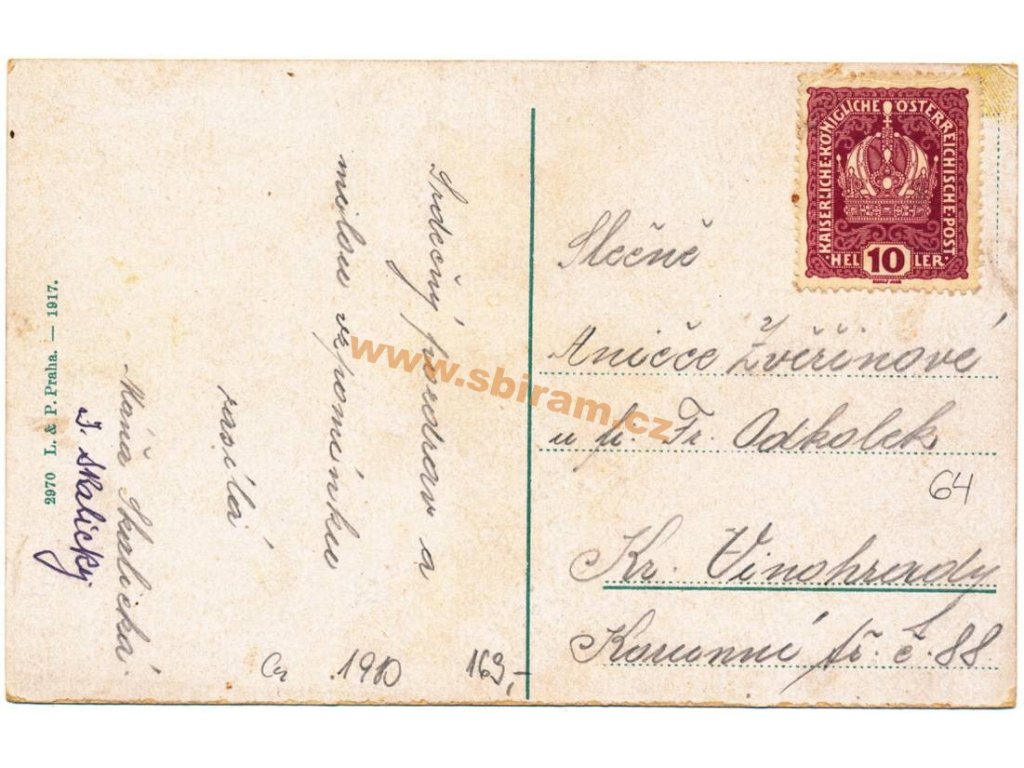 Srdečný pozdrav a
milou vzpomínku
zasílá
Máňa Skalická.
J. Skalický
2970 L. & P. Praha. — 1917.
1910
169,-
KAISERLICHE·KÖNIGLICHE·ÖSTERREICHISCHE·POST
HEL 10 LER
Slečně
Aničce Žvěřinové
u p. Fr. Odkolek
64
Kr. Vinohrady
Korunní tř. č. 88.
www.sbiram.cz